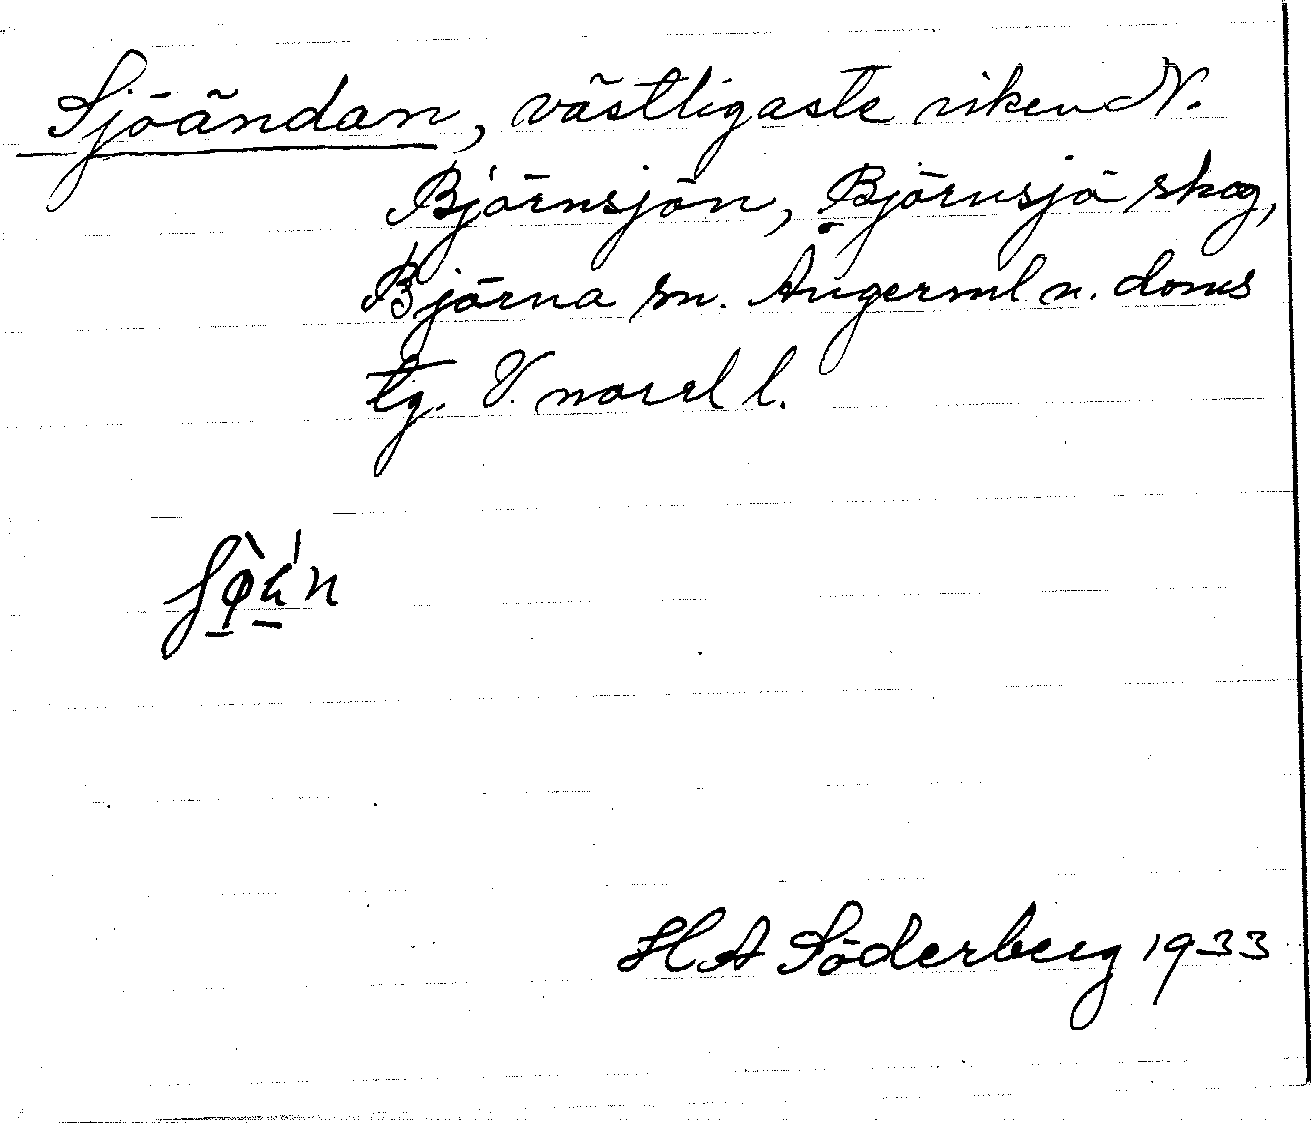 Sjöändan, västligaste viken N.
Björnsjön, Björnsjö skog,
Björna sn. Ångerml n. doms
tg. V. norrl l.
H A Söderberg 1933